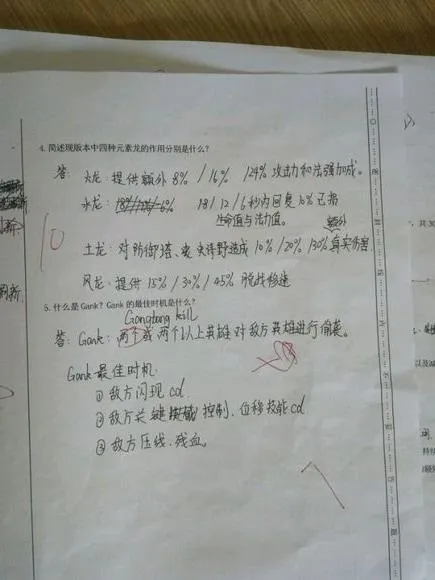 4. 简述现版本中四种元素龙的作用分别是什么?
答: 火龙: 提供额外 8% / 16% / 24% 攻击力和法强加成。
水龙: 18 / 12 / 6 秒内回复 10% 已损
生命值与法力值。
额外
10
土龙: 对防御塔、史诗野怪造成 10% / 20% / 30% 真实伤害
风龙: 提供 15% / 30% / 45% 脱战移速
5. 什么是 Gank? Gank 的最佳时机是什么?
kill
答: Gank: 两个或两个以上英雄对敌方英雄进行偷袭。
Gank 最佳时机
① 敌方闪现 cd
② 敌方关键 控制、位移技能 cd
③ 敌方压线、残血。
7